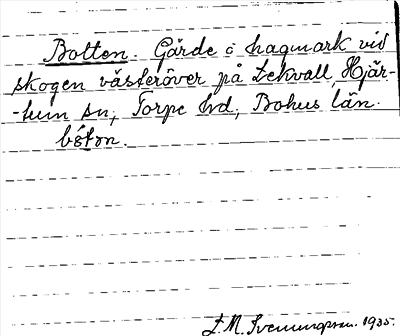 Botten. Gärde o hagmark vid
skogen västeröver på Lekvall, Hjär-
-tum sn, Torpe hd, Bohus län.
bótɔn.
F. M. Svenungsson. 1935.